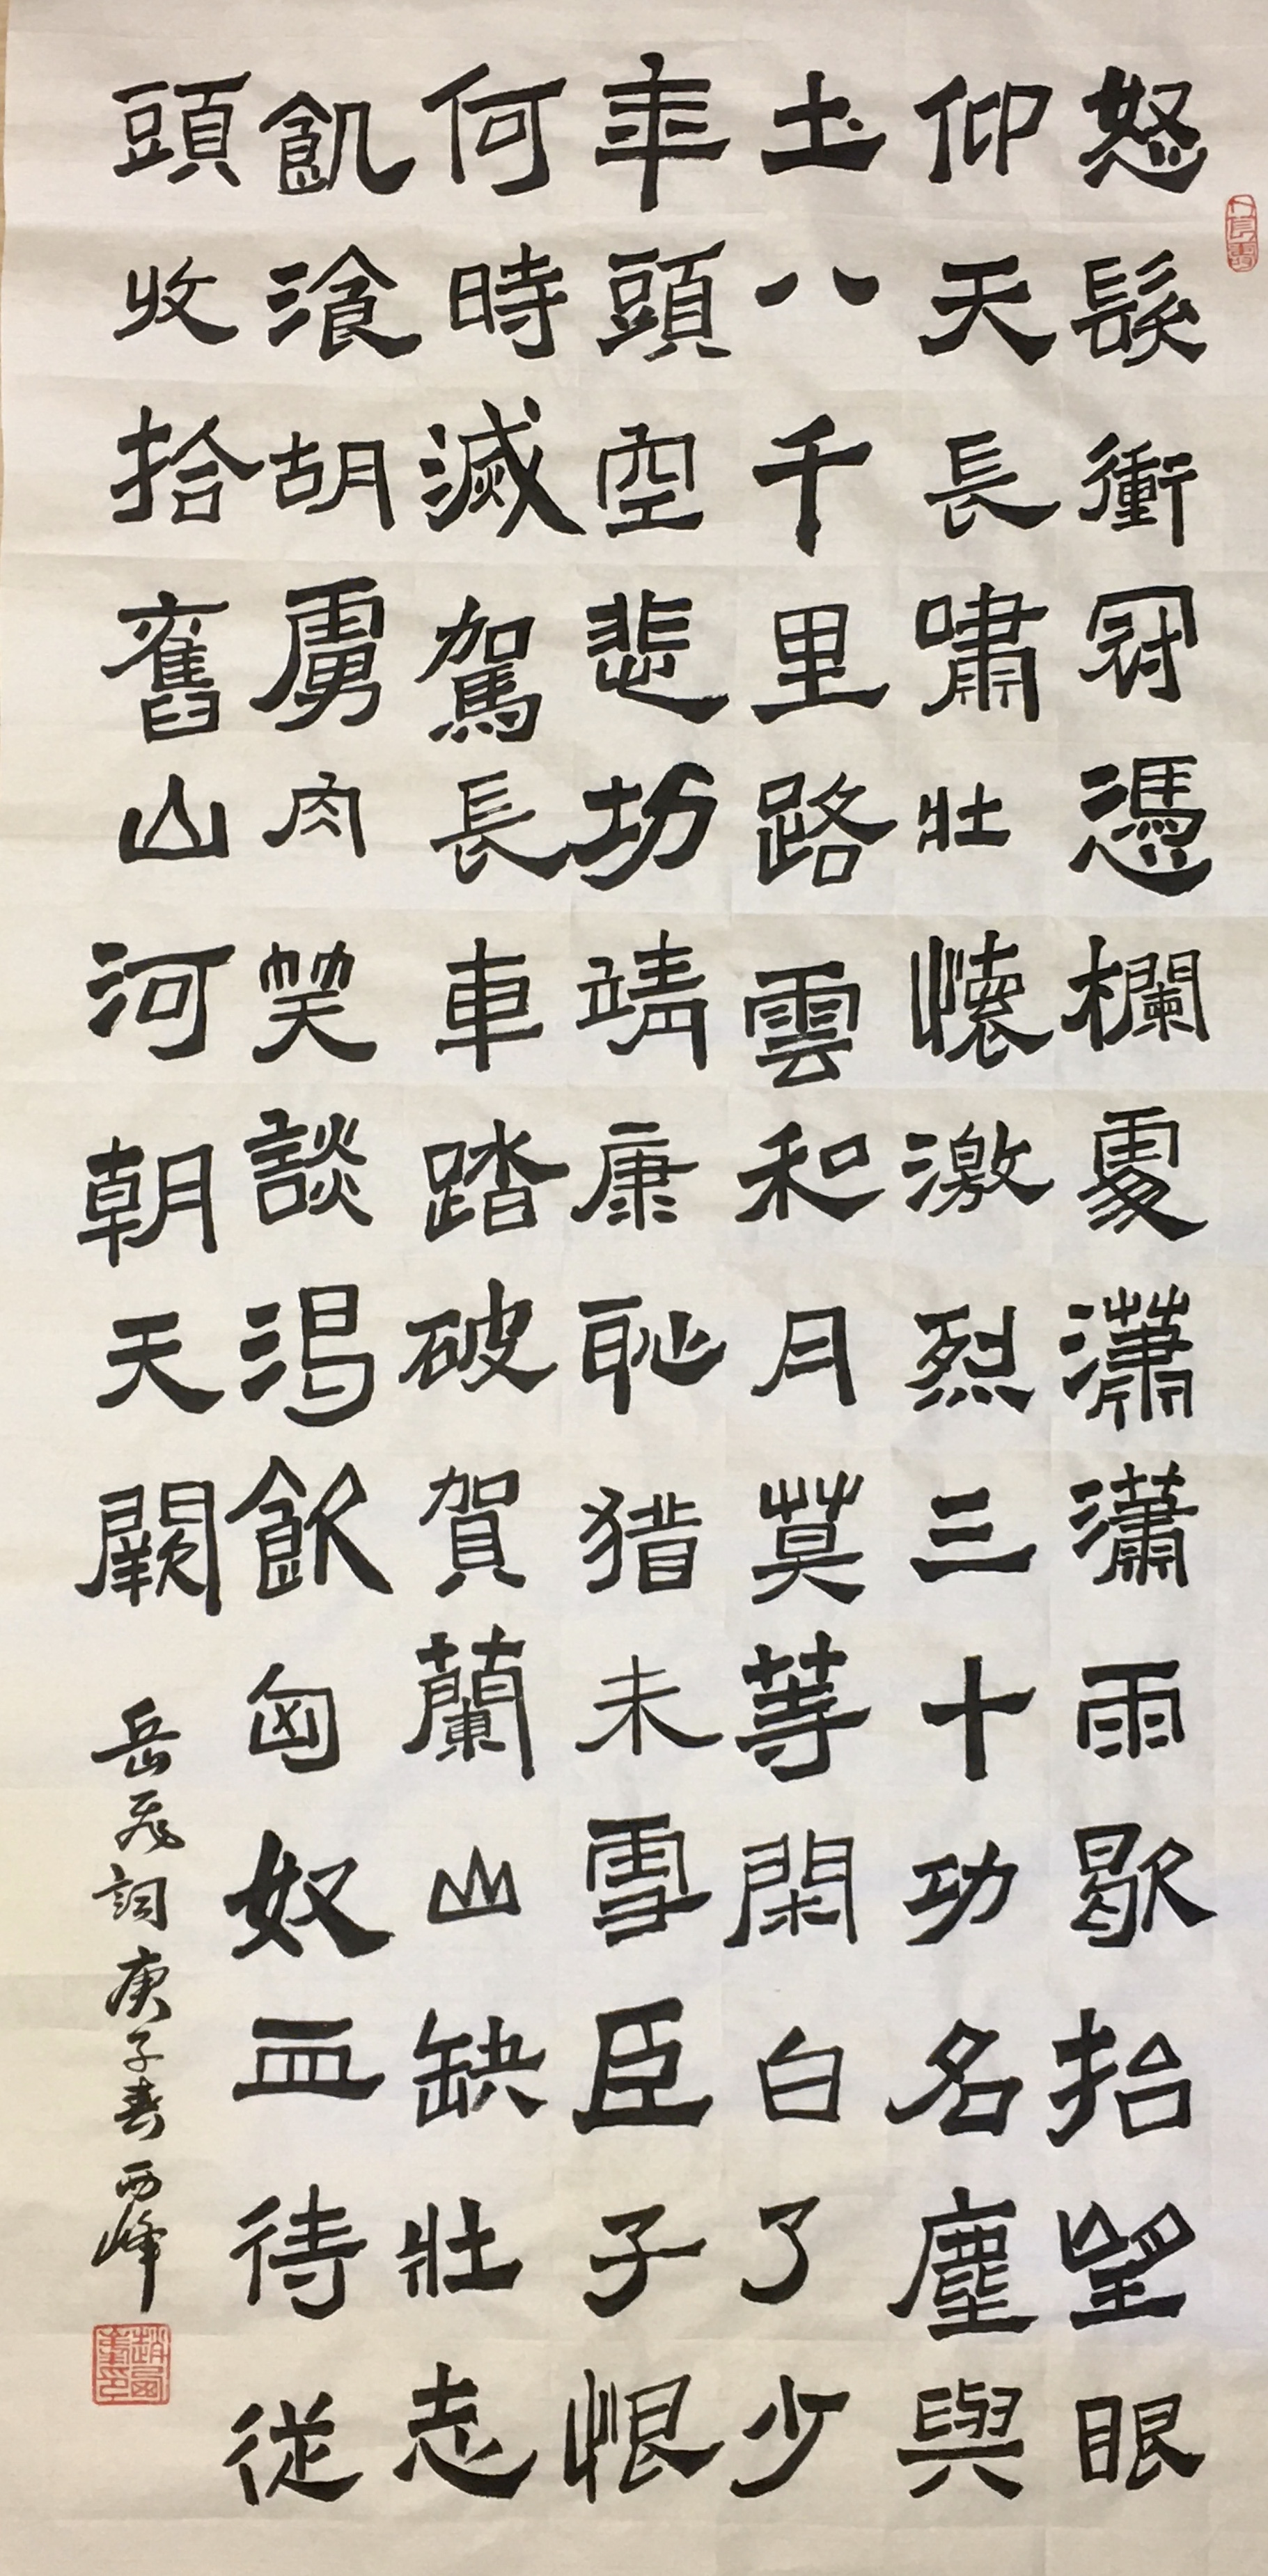 怒髮衝冠憑欄處瀟瀟雨歇抬望眼
仰天長嘯壯懷激烈三十功名塵與
土八千里路雲和月莫等閑白了少
年頭空悲切靖康耻猶未雪臣子恨
何時滅駕長車踏破賀蘭山缺壯志
飢湌胡虜肉笑談渴飲匈奴血待從
頭收拾舊山河朝天闕
岳飛詞庚子春西峰